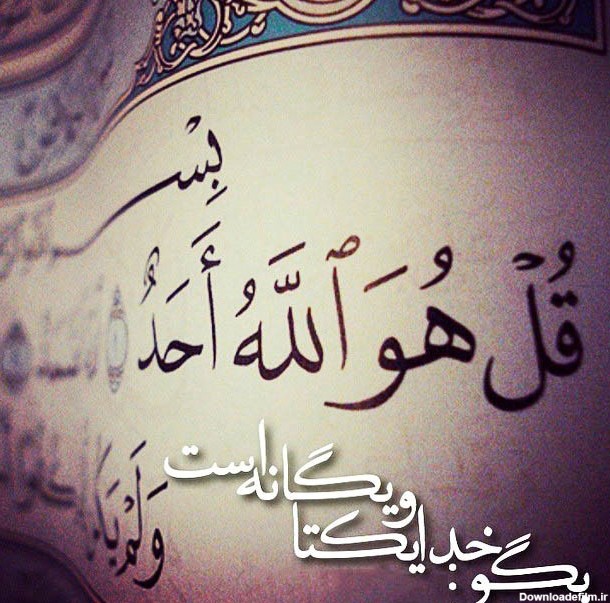 بِسْ
قُلْ هُوَ ٱللَّهُ أَحَدٌ
وَلَمْ
بگو: خدا یکتا
و یگانه است
Downloadefilm.ir